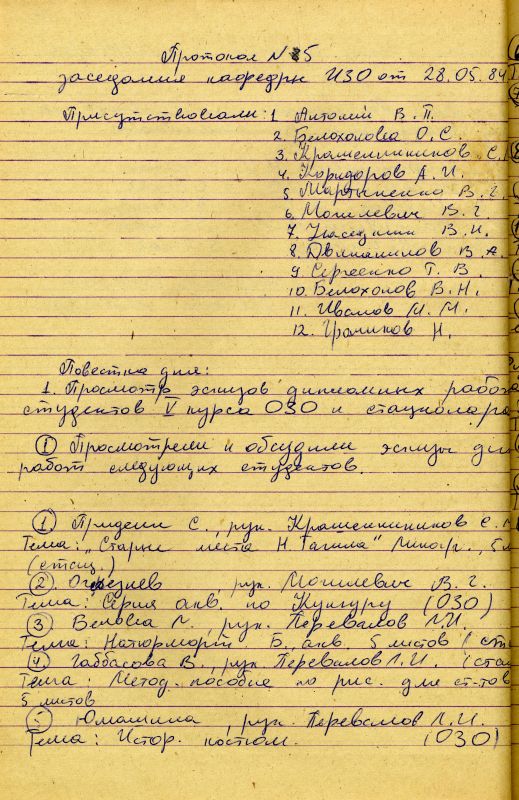 Протокол N 5
заседания кафедры ИЗО от 28.05.84
Присутствовали: 1 Антоний В. П.
2. Белохонова О. С.
3. Крашенинников С.
4. Коридоров А. И.
5 Мартыненко В. Г.
6. Могилевич В. Г.
7. Наседкин В. Н.
8. Двинанинов В. А.
9 Сергеенко Т. В.
10. Белохонов В. Н.
11. Иванов М. М.
12. Громиков Н.
Повестка дня:
1. Просмотр эскизов дипломных работ
студентов V курса ОЗО и стационара
① Просмотрели и обсудили эскизы дип
работ следующих студентов.
① Придеин С., рук. Крашенинников С.
Тема: „Старые места Н. Тагила" Линогр., 5
(стац.)
② рук. Могилевич В. Г.
Тема: Серия акв. по Кунгуру (ОЗО)
③ Белова Л., рук. Перевалов Л.И.
Тема: Натюрморт Б. акв. 5 листов (ста
④ Габбасова В., рук Перевалов Л.И. (стац
Тема: Метод. пособие по рис. для ст-тов
5 листов
Юмашина, рук. Перевалов Л.И.
Тема: Истор. костюм. (ОЗО)